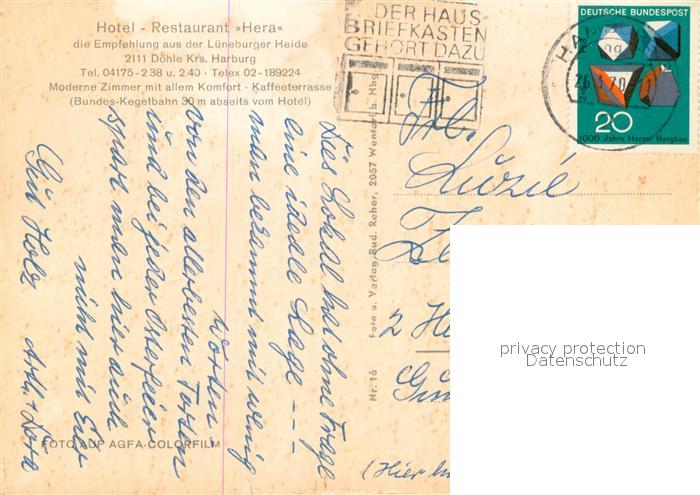 Hotel - Restaurant »Hera«
die Empfehlung aus der Lüneburger Heide
2111 Döhle Krs. Harburg
Tel. 04175-2 38 u. 2 40 · Telex 02-189224
Moderne Zimmer mit allem Komfort · Kaffeeterrasse
(Bundes-Kegelbahn 30 m abseits vom Hotel)
DER HAUS
BRIEFKASTEN
GEHÖRT DAZU
DEUTSCHE BUNDESPOST
20
1000 Jahre Harzer Bergbau
Dies Lokal hat ohne Frage
eine ideale Lage - - -
man bekommt mit wenig
Worten
von den allerbesten Torten
und bei jeder Osterfeier
spart man hier auch
nicht mit Eier
Gut Holz
Arth. + Dora
Foto u. Verlag Rud. Reher, 2057 Wentorf b. Hbg.
Nr. 16
Frl.
Luzie
2 H
(Hier
FOTO AUF AGFA-COLORFILM
privacy protection
Datenschutz